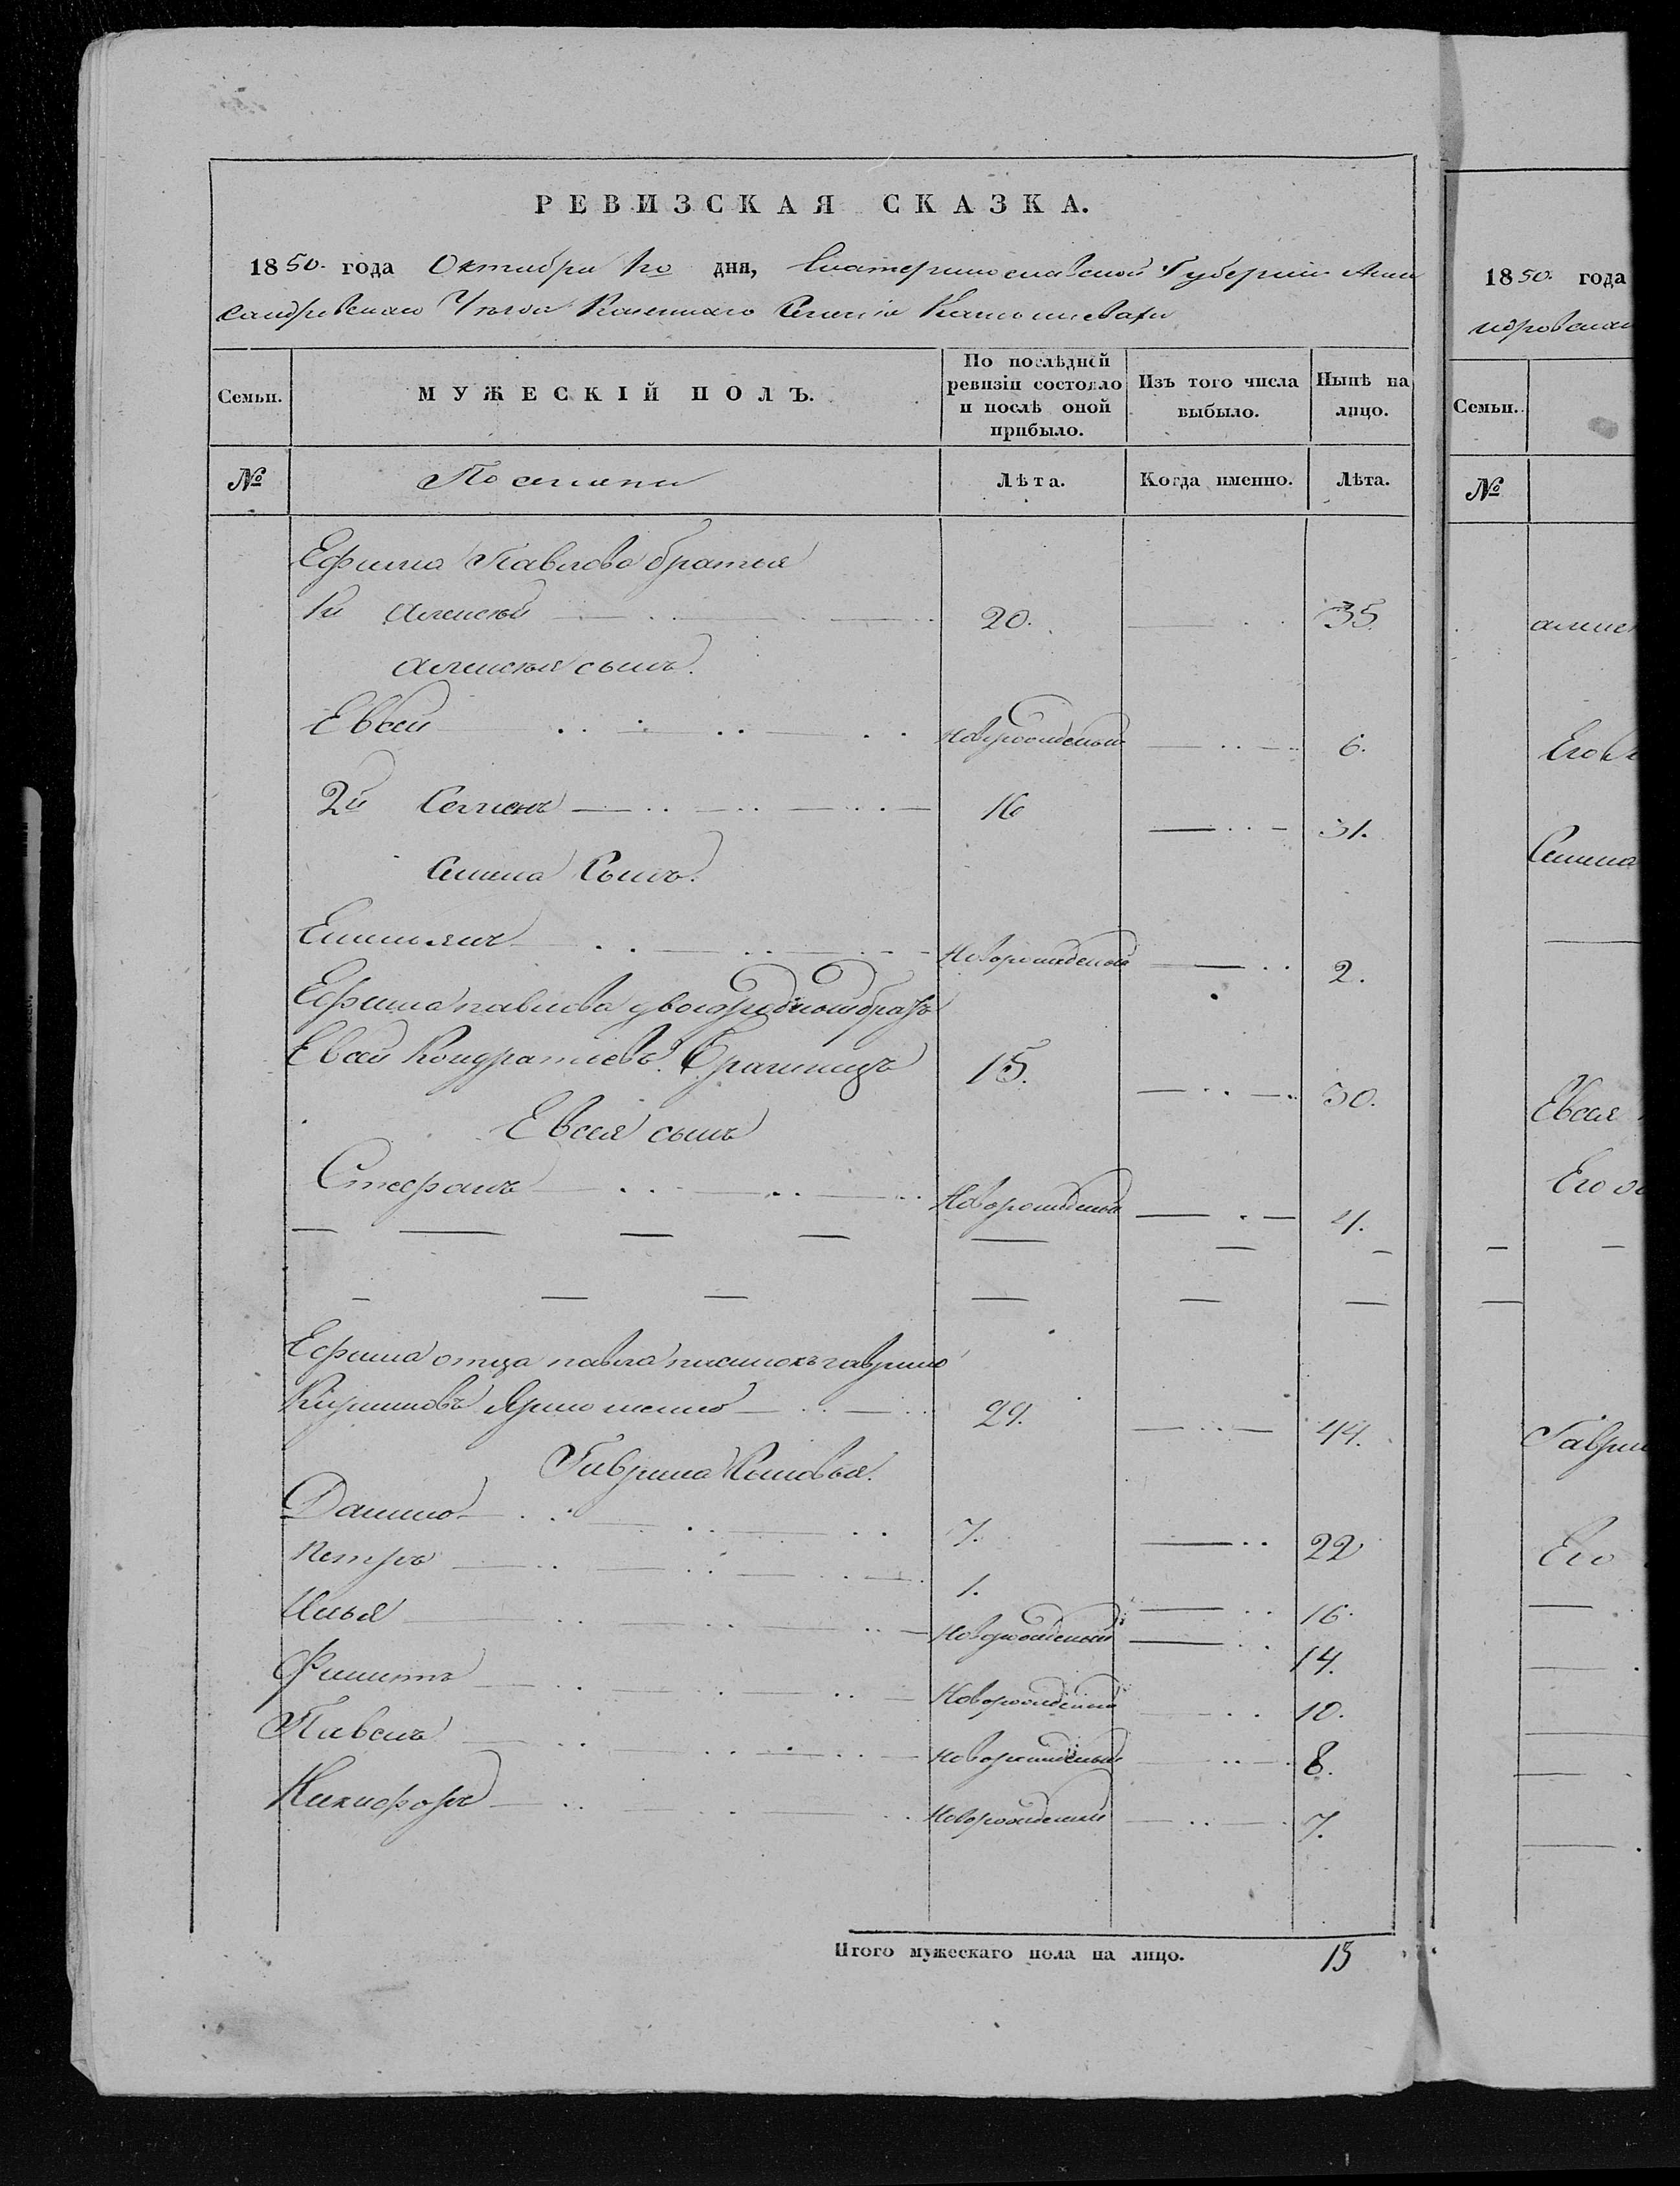 РЕВИЗСКАЯ СКАЗКА.
1850. года Октября 1го дня, Екатеринославской Губернии Алек
сандровскаго Уезда Казеннаго Селения
Семьи.
МУЖЕСКІЙ ПОЛЪ.
По послѣдней ревизіи состояло и послѣ оной прибыло.
Изъ того числа выбыло.
Нынѣ на лицо.
№
Лѣта.
Когда именно.
Лѣта.
Ефима Павлова братья
1й Алексей 20. 35.
Алексея сынъ.
Евсей Новорожденный 6.
2й Семенъ 16 31.
Семена Сынъ.
Емельянъ Новорожденный 2.
Ефима павлова двоюродной братъ
Евсей Кондратіевъ 15. 30.
Евсея сынъ
Стефанъ Новорожденный 4.
Ефима отца павла пасинокъ гаврило
Кириловъ 29. 44.
Гаврила Сыновья.
Данило 7. 22
Петръ 1. 16.
Илья Новорожденный 14.
Филипъ Новорожденный 10.
Павелъ Новорожденный 8.
Никифоръ Новорожденный 7.
Итого мужескаго пола на лицо. 15
1850. года
Семьи.
№
Его
Семена
Евсея
Его
Гаврил
Его